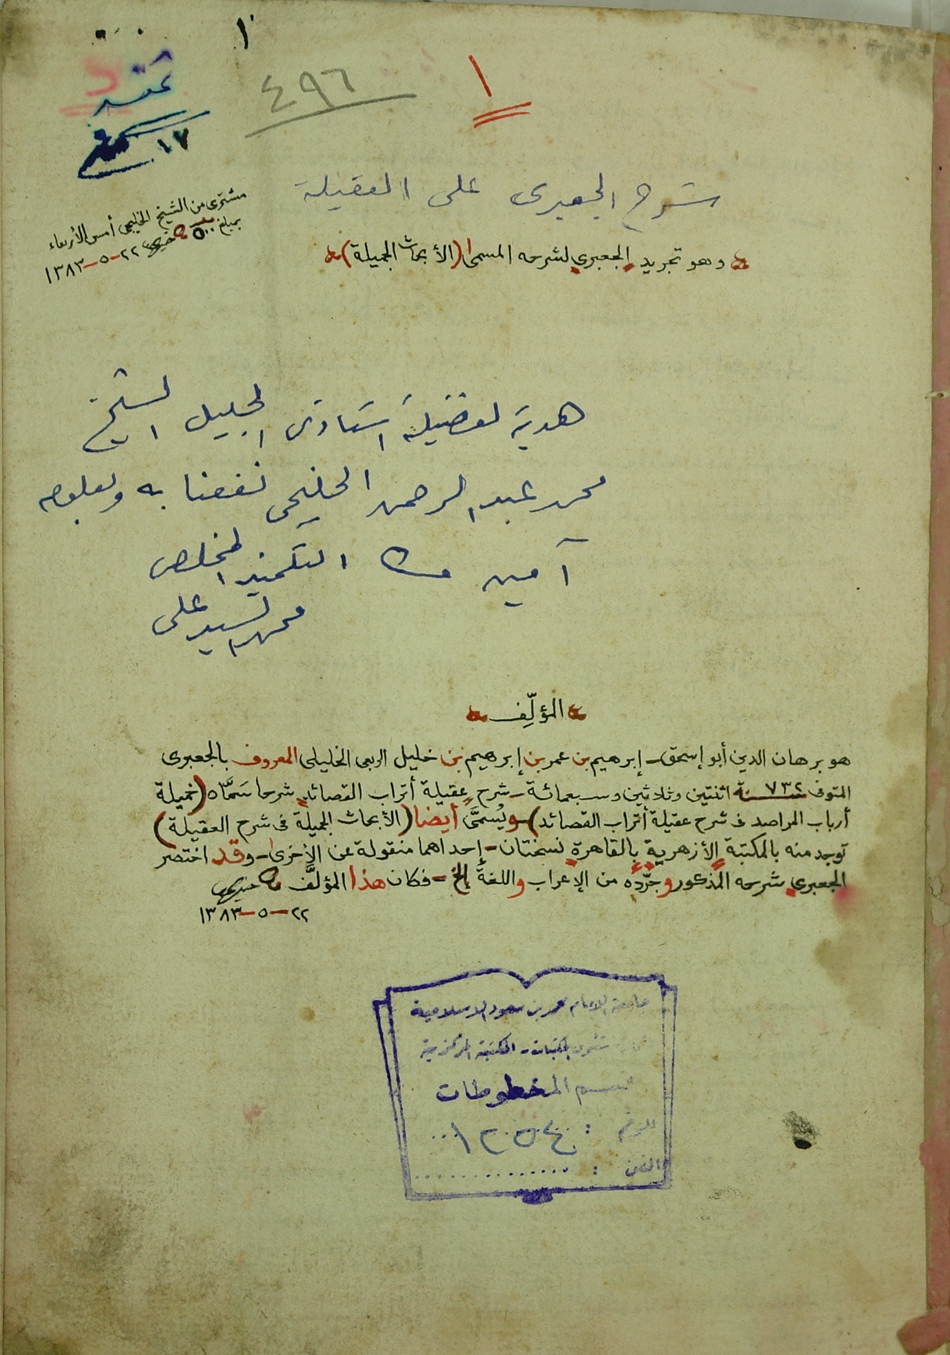 ١
٤٩٦
١
١٧
مشترى من الشيخ الخليجي أمس الأربعاء
بمبلغ ٥٠٠
٢٢-٥-١٣٨٣
شرح الجعبرى على العقيلة
وهو تجريد الجعبري لشرحه المسمى (الأبحاث الجميلة)
هدية لفضيلة استاذى الجليل الشيخ
محمد عبد الرحمن الخليجى نفعنا به وبعلومه
آمين من التلميذ المخلص
محمد السيد على
المؤلِّف
هو برهان الدين أبو إسحق - إبرهيم بن عمر بن إبرهيم بن خليل الربعى الخليلى المعروف بالجعبرى
المتوفى سنة ٧٣٢ اثنتين وثلاثين وسبعمائة - شرح عقيلة أتراب القصائد شرحا سَمَّاه (خميلة
أرباب المراصد فى شرح عقيلة أتراب القصائد) - ويُسمَّى أيضا (الأبحاث الجميلة فى شرح العقيلة)
توجد منه بالمكتبة الأزهرية بالقاهرة نسختان - إحداهما منقولة عن الأخرى - وقد اختصر
الجعبري شرحه المذكور وجرّده من الإعراب واللغة الخ - فكان هذا المؤلَّف
٢٢-٥-١٣٨٣
جامعة الامام محمد بن سعود الاسلامية
شئون المكتبات - المكتبة المركزية
قسم المخطوطات
الرقم : ١٢٥٥٤
الفن : ..............